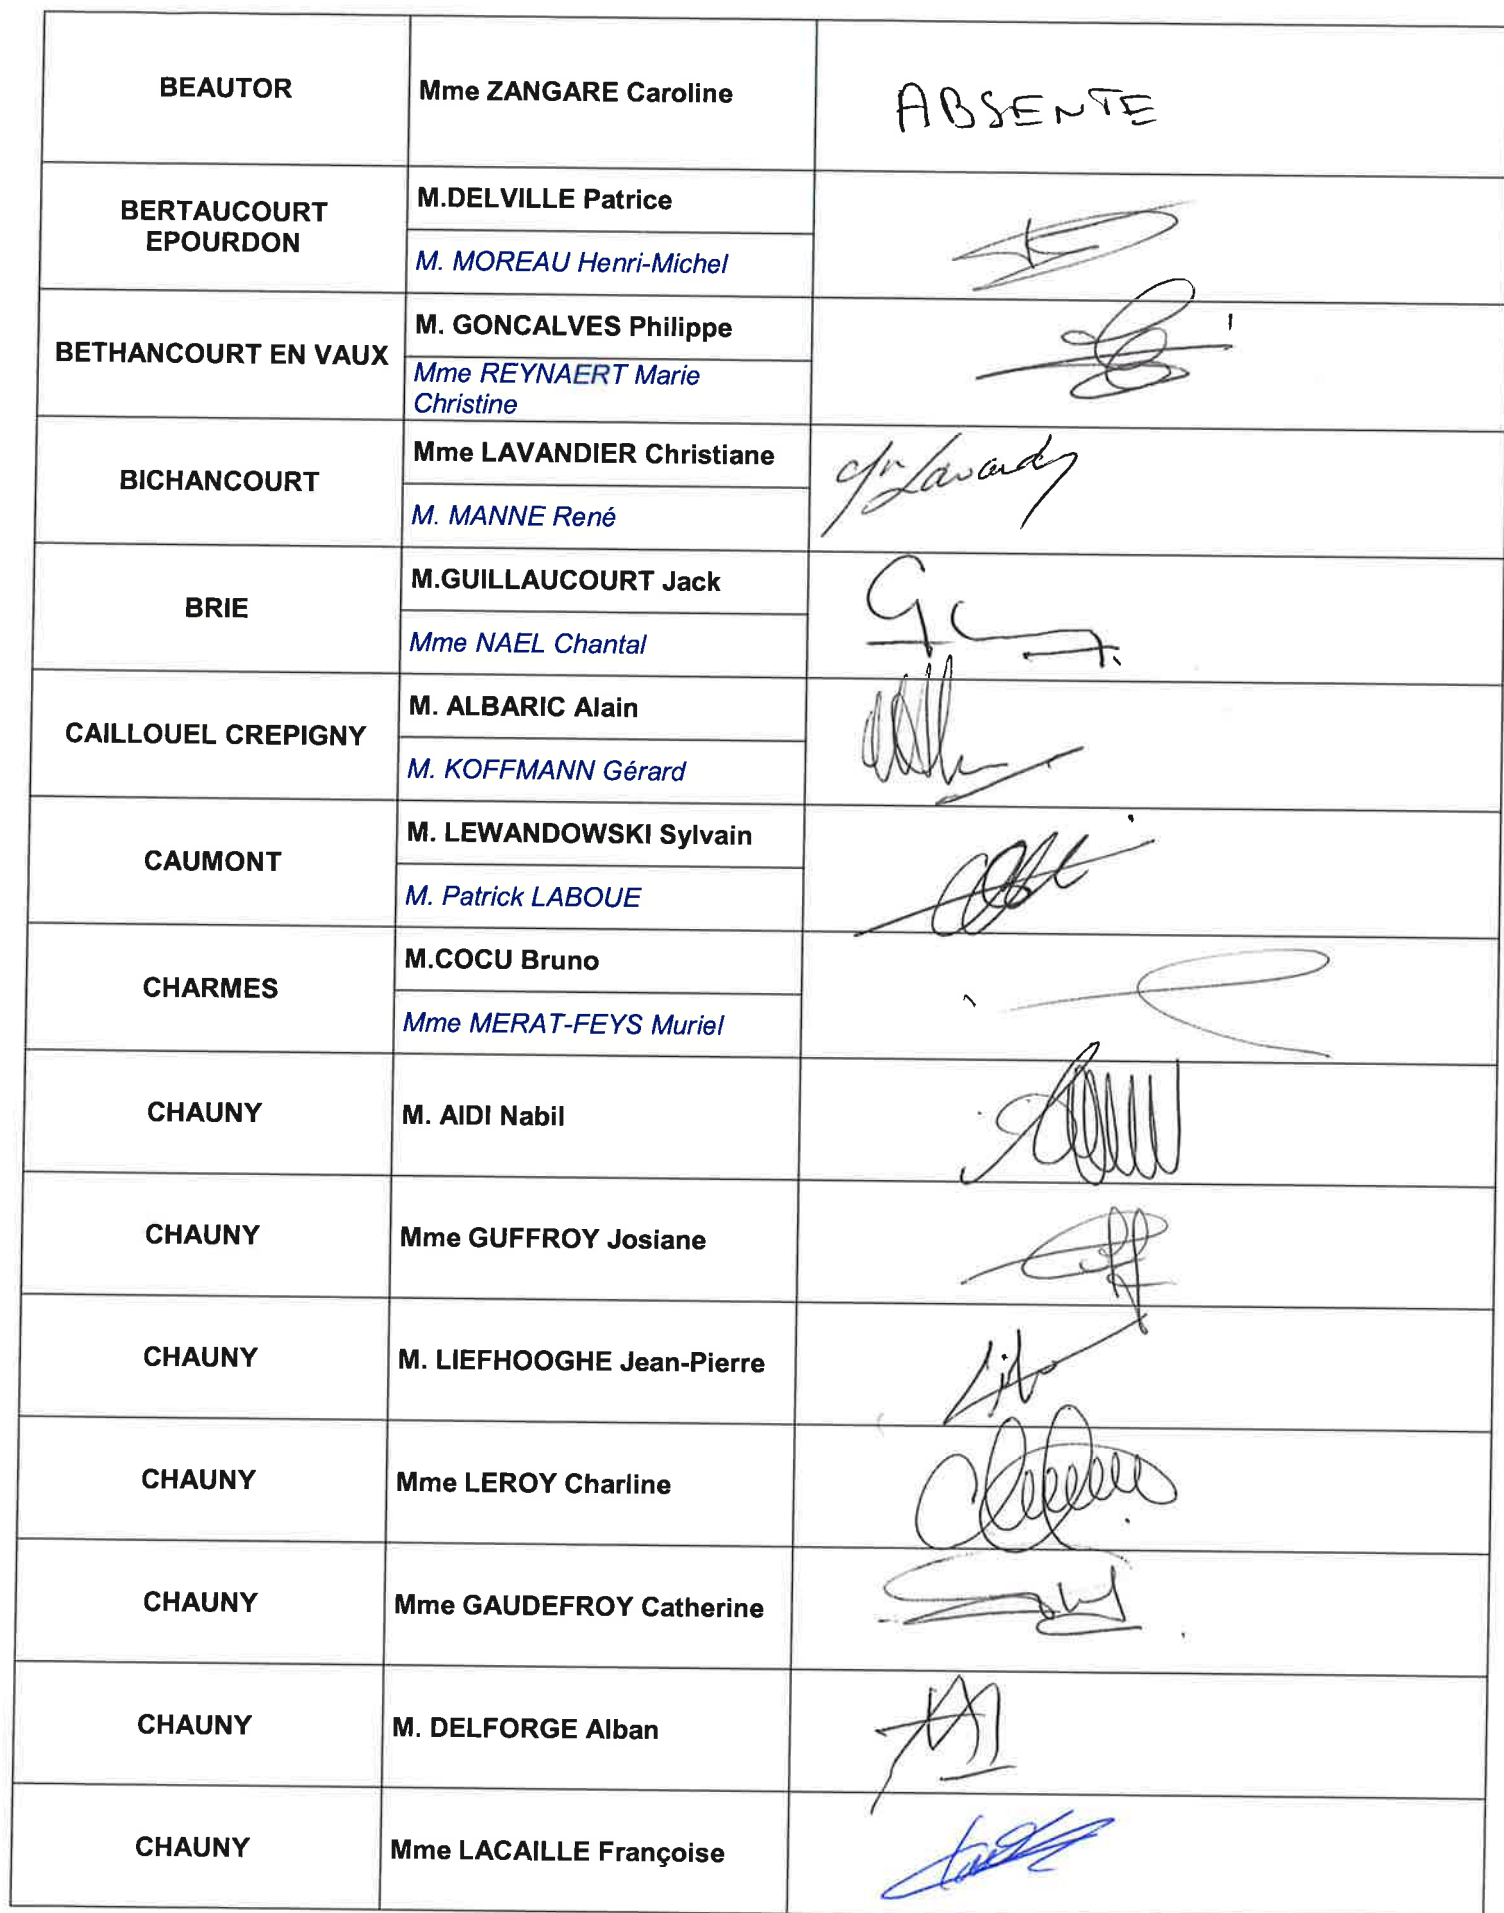 BEAUTOR
Mme ZANGARE Caroline
ABSENTE
BERTAUCOURT
EPOURDON
M.DELVILLE Patrice
M. MOREAU Henri-Michel
BETHANCOURT EN VAUX
M. GONCALVES Philippe
Mme REYNAERT Marie
Christine
BICHANCOURT
Mme LAVANDIER Christiane
M. MANNE René
BRIE
M.GUILLAUCOURT Jack
Mme NAEL Chantal
CAILLOUEL CREPIGNY
M. ALBARIC Alain
M. KOFFMANN Gérard
CAUMONT
M. LEWANDOWSKI Sylvain
M. Patrick LABOUE
CHARMES
M.COCU Bruno
Mme MERAT-FEYS Muriel
CHAUNY
M. AIDI Nabil
CHAUNY
Mme GUFFROY Josiane
CHAUNY
M. LIEFHOOGHE Jean-Pierre
CHAUNY
Mme LEROY Charline
CHAUNY
Mme GAUDEFROY Catherine
CHAUNY
M. DELFORGE Alban
CHAUNY
Mme LACAILLE Françoise